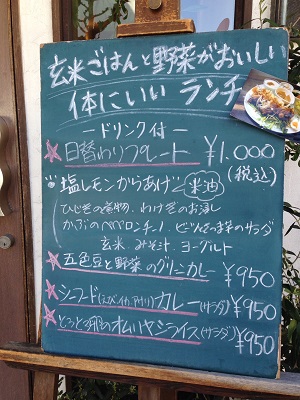 玄米ごはんと野菜がおいしい
体にいい ランチ
ードリンク付ー
日替わりプレート ¥1.000
(税込)
塩レモンからあげ 米油
ひじきの煮物、わけぎのお浸し
かぶのペペロンチーノ、どっさり葉のサラダ
玄米 みそ汁 ヨーグルト
五色豆と野菜のグリーンカレー ¥950
シーフード(えび・イカ・アサリ)カレー(サラダ) ¥950
とろとろ卵のオムハヤシライス(サラダ) ¥950